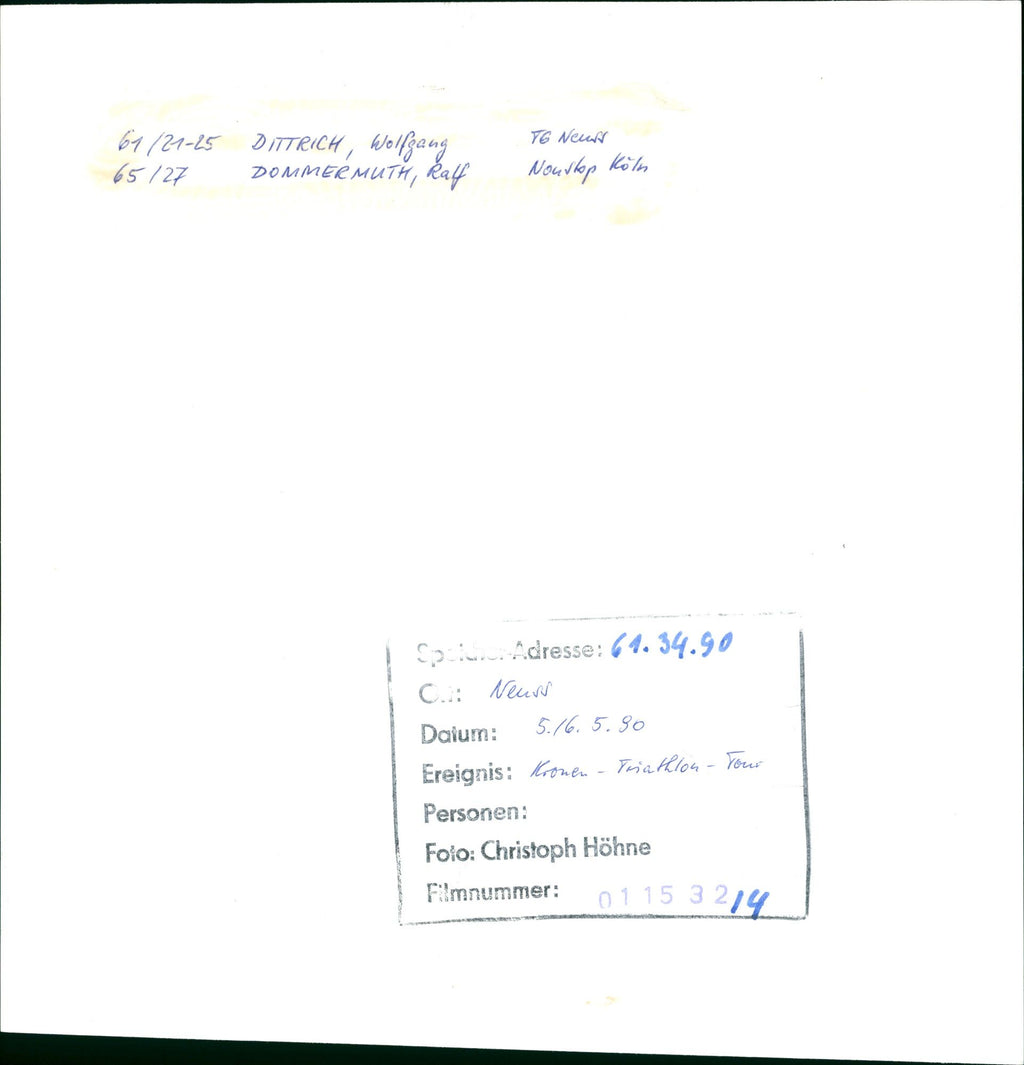 61/21-25 DITTRICH, Wolfgang TG Neuss
65/27 DOMMERMUTH, Ralf Nonstop Köln
Speicher-Adresse: 61.34.90
Ort: Neuss
Datum: 5./6. 5. 90
Ereignis: Kronen-Triathlon-Tour
Personen:
Foto: Christoph Höhne
Filmnummer: 011532/14